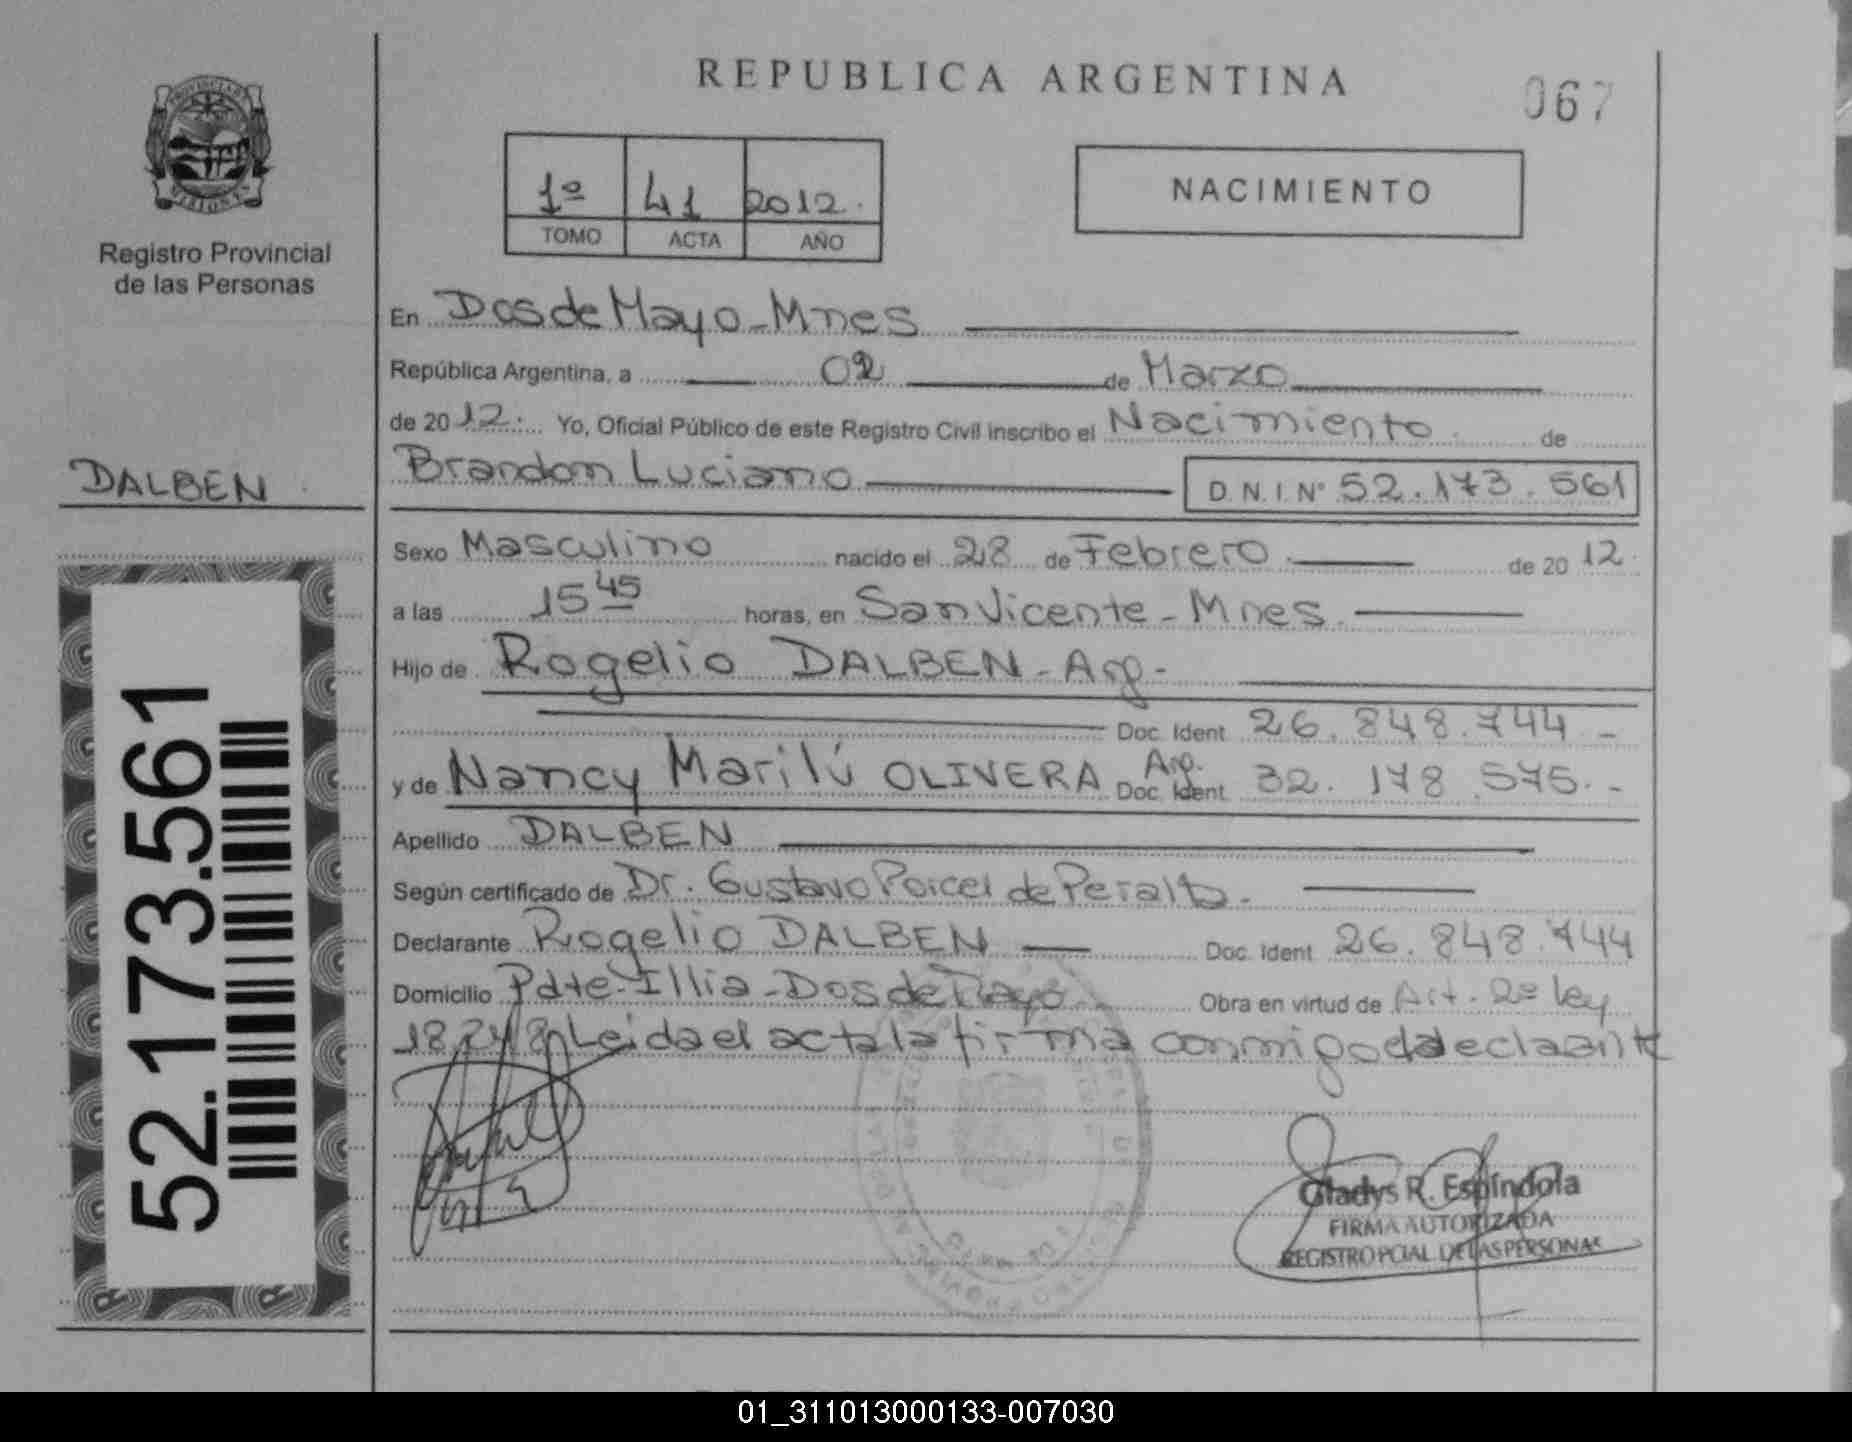 REPUBLICA ARGENTINA
067
PROVINCIA DE
MISIONES
Registro Provincial
de las Personas
1º 41 2012.
TOMO ACTA AÑO
NACIMIENTO
En Dos de Mayo - Mnes
República Argentina, a 02 de Marzo
de 2012. Yo, Oficial Público de este Registro Civil inscribo el Nacimiento de
DALBEN
Brandon Luciano D.N.I. Nº 52.173.561
Sexo Masculino nacido el 28 de Febrero de 2012.
a las 15 45 horas, en San Vicente - Mnes.
Hijo de Rogelio DALBEN - Arg -
Doc. Ident. 26.848.744.-
y de Nancy Marilú OLIVERA Arg. Doc. Ident. 32.178.575.-
Apellido DALBEN
Según certificado de Dr. Gustavo Porcel de Peralta.
Declarante Rogelio DALBEN Doc. Ident. 26.848.744
Domicilio Pdte. Illia - Dos de Mayo Obra en virtud de Art. 2º ley
18.248 Leida el acta la firma conmigo declarante
52.173.561
Gladys R. Espíndola
FIRMA AUTORIZADA
REGISTRO PCIAL. DE LAS PERSONAS
01_311013000133-007030